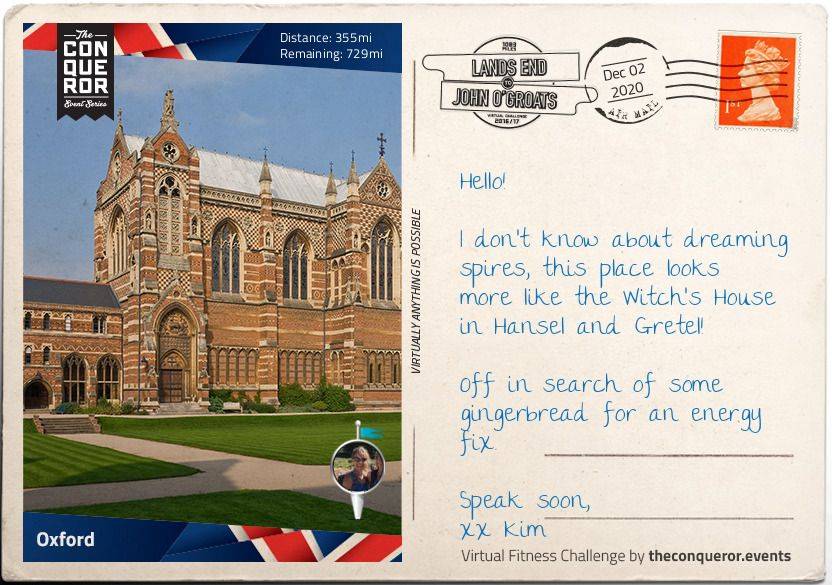 The
CON
QUE
ROR
Event Series
Distance: 355mi
Remaining: 729mi
Oxford
VIRTUALLY ANYTHING IS POSSIBLE
1083
MILES
LANDS END
TO
JOHN O'GROATS
VIRTUAL CHALLENGE
2016/17
Dec 02
2020
AIR MAIL
1ST
Hello!
I don't know about dreaming
spires, this place looks
more like the Witch's House
in Hansel and Gretel!
Off in search of some
gingerbread for an energy
fix.
Speak soon,
xx Kim
Virtual Fitness Challenge by theconqueror.events